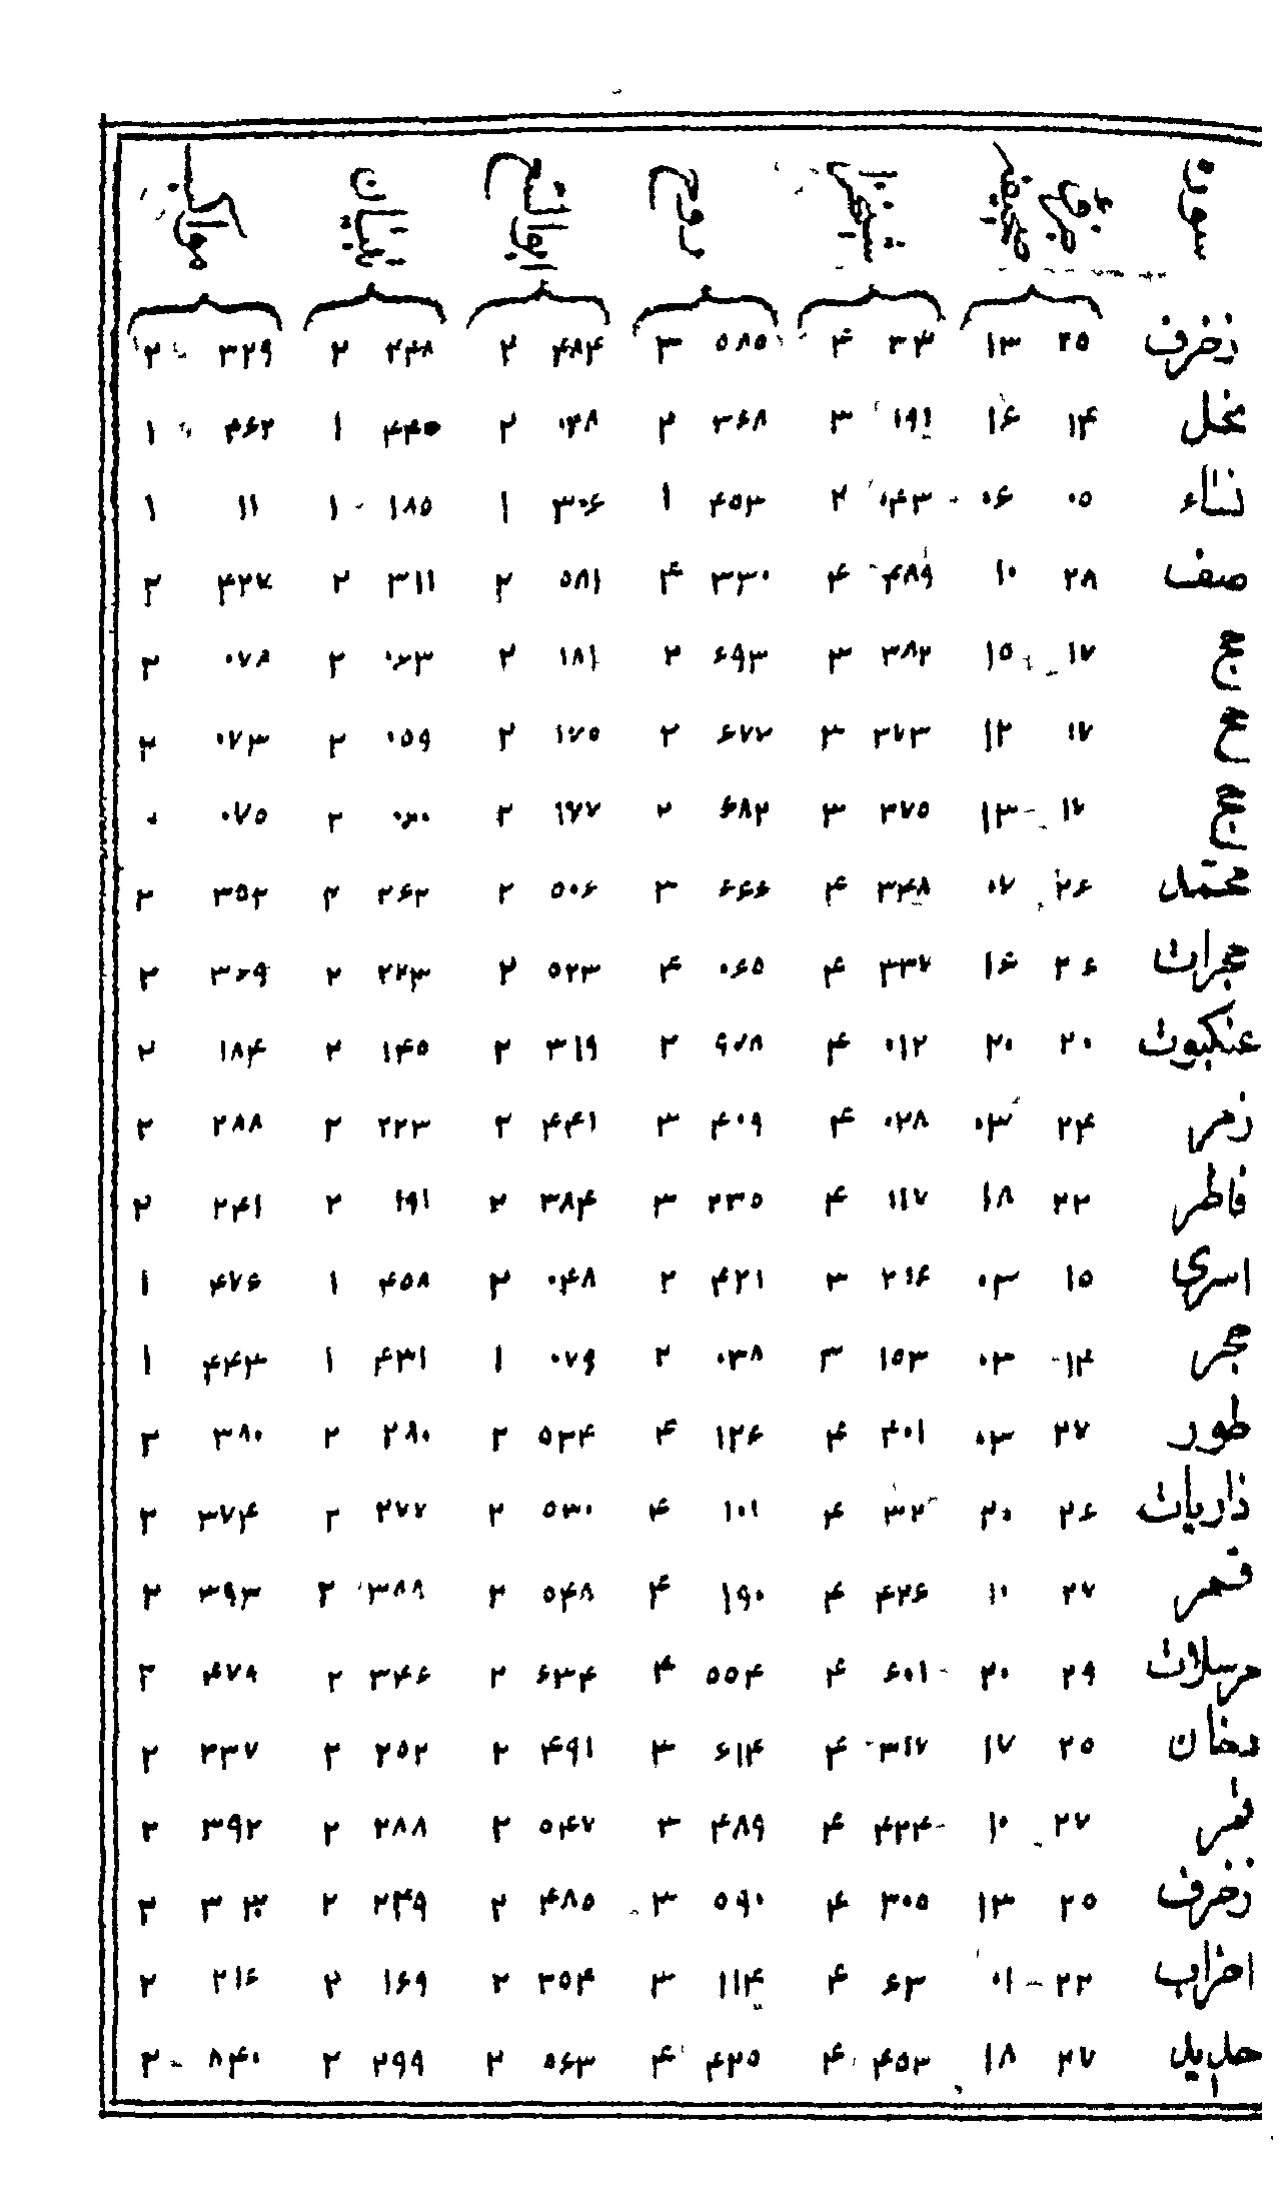 سوره
زخرف ۲۵ ۱۳ ۳۴ ۴ ۵۸۵ ۳ ۴۸۴ ۲ ۲۴۸ ۲ ۳۲۹ ۲
نحل ۱۴ ۱۶ ۱۹۱ ۳ ۳۶۸ ۲ ۰۴۸ ۲ ۴۴۰ ۱ ۴۶۲ ۱
نساء ۰۵ ۰۶ ۰۴۳ ۲ ۴۵۳ ۱ ۳۰۶ ۱ ۱۸۵ ۱ ۱۱ ۱
صف ۲۸ ۱۰ ۴۸۹ ۴ ۳۳۰ ۴ ۵۸۱ ۲ ۳۱۱ ۲ ۴۲۷ ۲
حج ۱۷ ۱۵ ۳۸۲ ۳ ۶۹۳ ۲ ۱۸۱ ۲ ۰۶۳ ۲ ۰۷۸ ۲
حج ۱۷ ۱۲ ۳۷۳ ۳ ۶۷۲ ۲ ۱۷۵ ۲ ۰۵۹ ۲ ۰۷۳ ۲
حج ۱۷ ۱۳ ۳۷۵ ۳ ۶۸۲ ۲ ۱۷۷ ۲ ۰۶۰ ۲ ۰۷۵ ۰
محمد ۲۶ ۰۷ ۳۴۸ ۴ ۶۶۶ ۳ ۵۰۶ ۲ ۲۶۲ ۲ ۳۵۲ ۲
حجرات ۲۶ ۱۶ ۳۳۷ ۴ ۰۶۵ ۴ ۵۲۳ ۲ ۲۷۳ ۲ ۳۶۹ ۲
عنکبوت ۲۰ ۲۰ ۰۱۲ ۴ ۹۷۸ ۲ ۳۱۹ ۲ ۱۴۵ ۲ ۱۸۴ ۲
زمر ۲۴ ۰۳ ۰۲۸ ۴ ۴۰۹ ۳ ۴۴۱ ۲ ۲۲۳ ۲ ۲۸۸ ۲
فاطر ۲۲ ۱۸ ۱۱۷ ۴ ۲۳۵ ۳ ۳۸۴ ۲ ۱۹۱ ۲ ۲۴۱ ۲
اسری ۱۵ ۰۳ ۲۱۶ ۳ ۴۲۱ ۲ ۰۴۸ ۲ ۴۵۸ ۱ ۴۷۶ ۱
حجر ۱۴ ۰۳ ۱۵۳ ۳ ۰۳۸ ۲ ۰۷۹ ۱ ۴۳۱ ۱ ۴۴۳ ۱
طور ۲۷ ۰۳ ۴۰۱ ۴ ۱۲۶ ۴ ۵۳۴ ۲ ۲۸۰ ۲ ۳۸۰ ۲
ذاریات ۲۶ ۲۰ ۳۲ ۴ ۱۰۱ ۴ ۵۳۰ ۲ ۲۷۷ ۲ ۳۷۴ ۲
قمر ۲۷ ۱۰ ۴۲۶ ۴ ۱۹۰ ۴ ۵۴۸ ۲ ۳۸۸ ۲ ۳۹۳ ۲
مرسلات ۲۹ ۲۰ ۶۰۱ ۴ ۵۵۴ ۴ ۶۳۴ ۲ ۳۴۶ ۲ ۴۷۹ ۲
دخان ۲۵ ۱۷ ۳۱۷ ۴ ۶۱۴ ۳ ۴۹۱ ۲ ۲۵۲ ۲ ۳۳۷ ۲
قمر ۲۷ ۱۰ ۴۲۴ ۴ ۴۸۹ ۳ ۵۴۷ ۲ ۲۸۸ ۲ ۳۹۲ ۲
زخرف ۲۵ ۱۳ ۳۰۵ ۴ ۵۹۰ ۳ ۴۸۵ ۲ ۲۴۹ ۲ ۲
احزاب ۲۲ ۰۱ ۶۳ ۴ ۱۱۴ ۳ ۳۵۴ ۲ ۱۶۹ ۲ ۲۱۶ ۲
حدید ۲۷ ۱۸ ۴۵۳ ۴ ۴۲۵ ۴ ۵۶۳ ۲ ۲۹۹ ۲ ۸۴۰ ۲